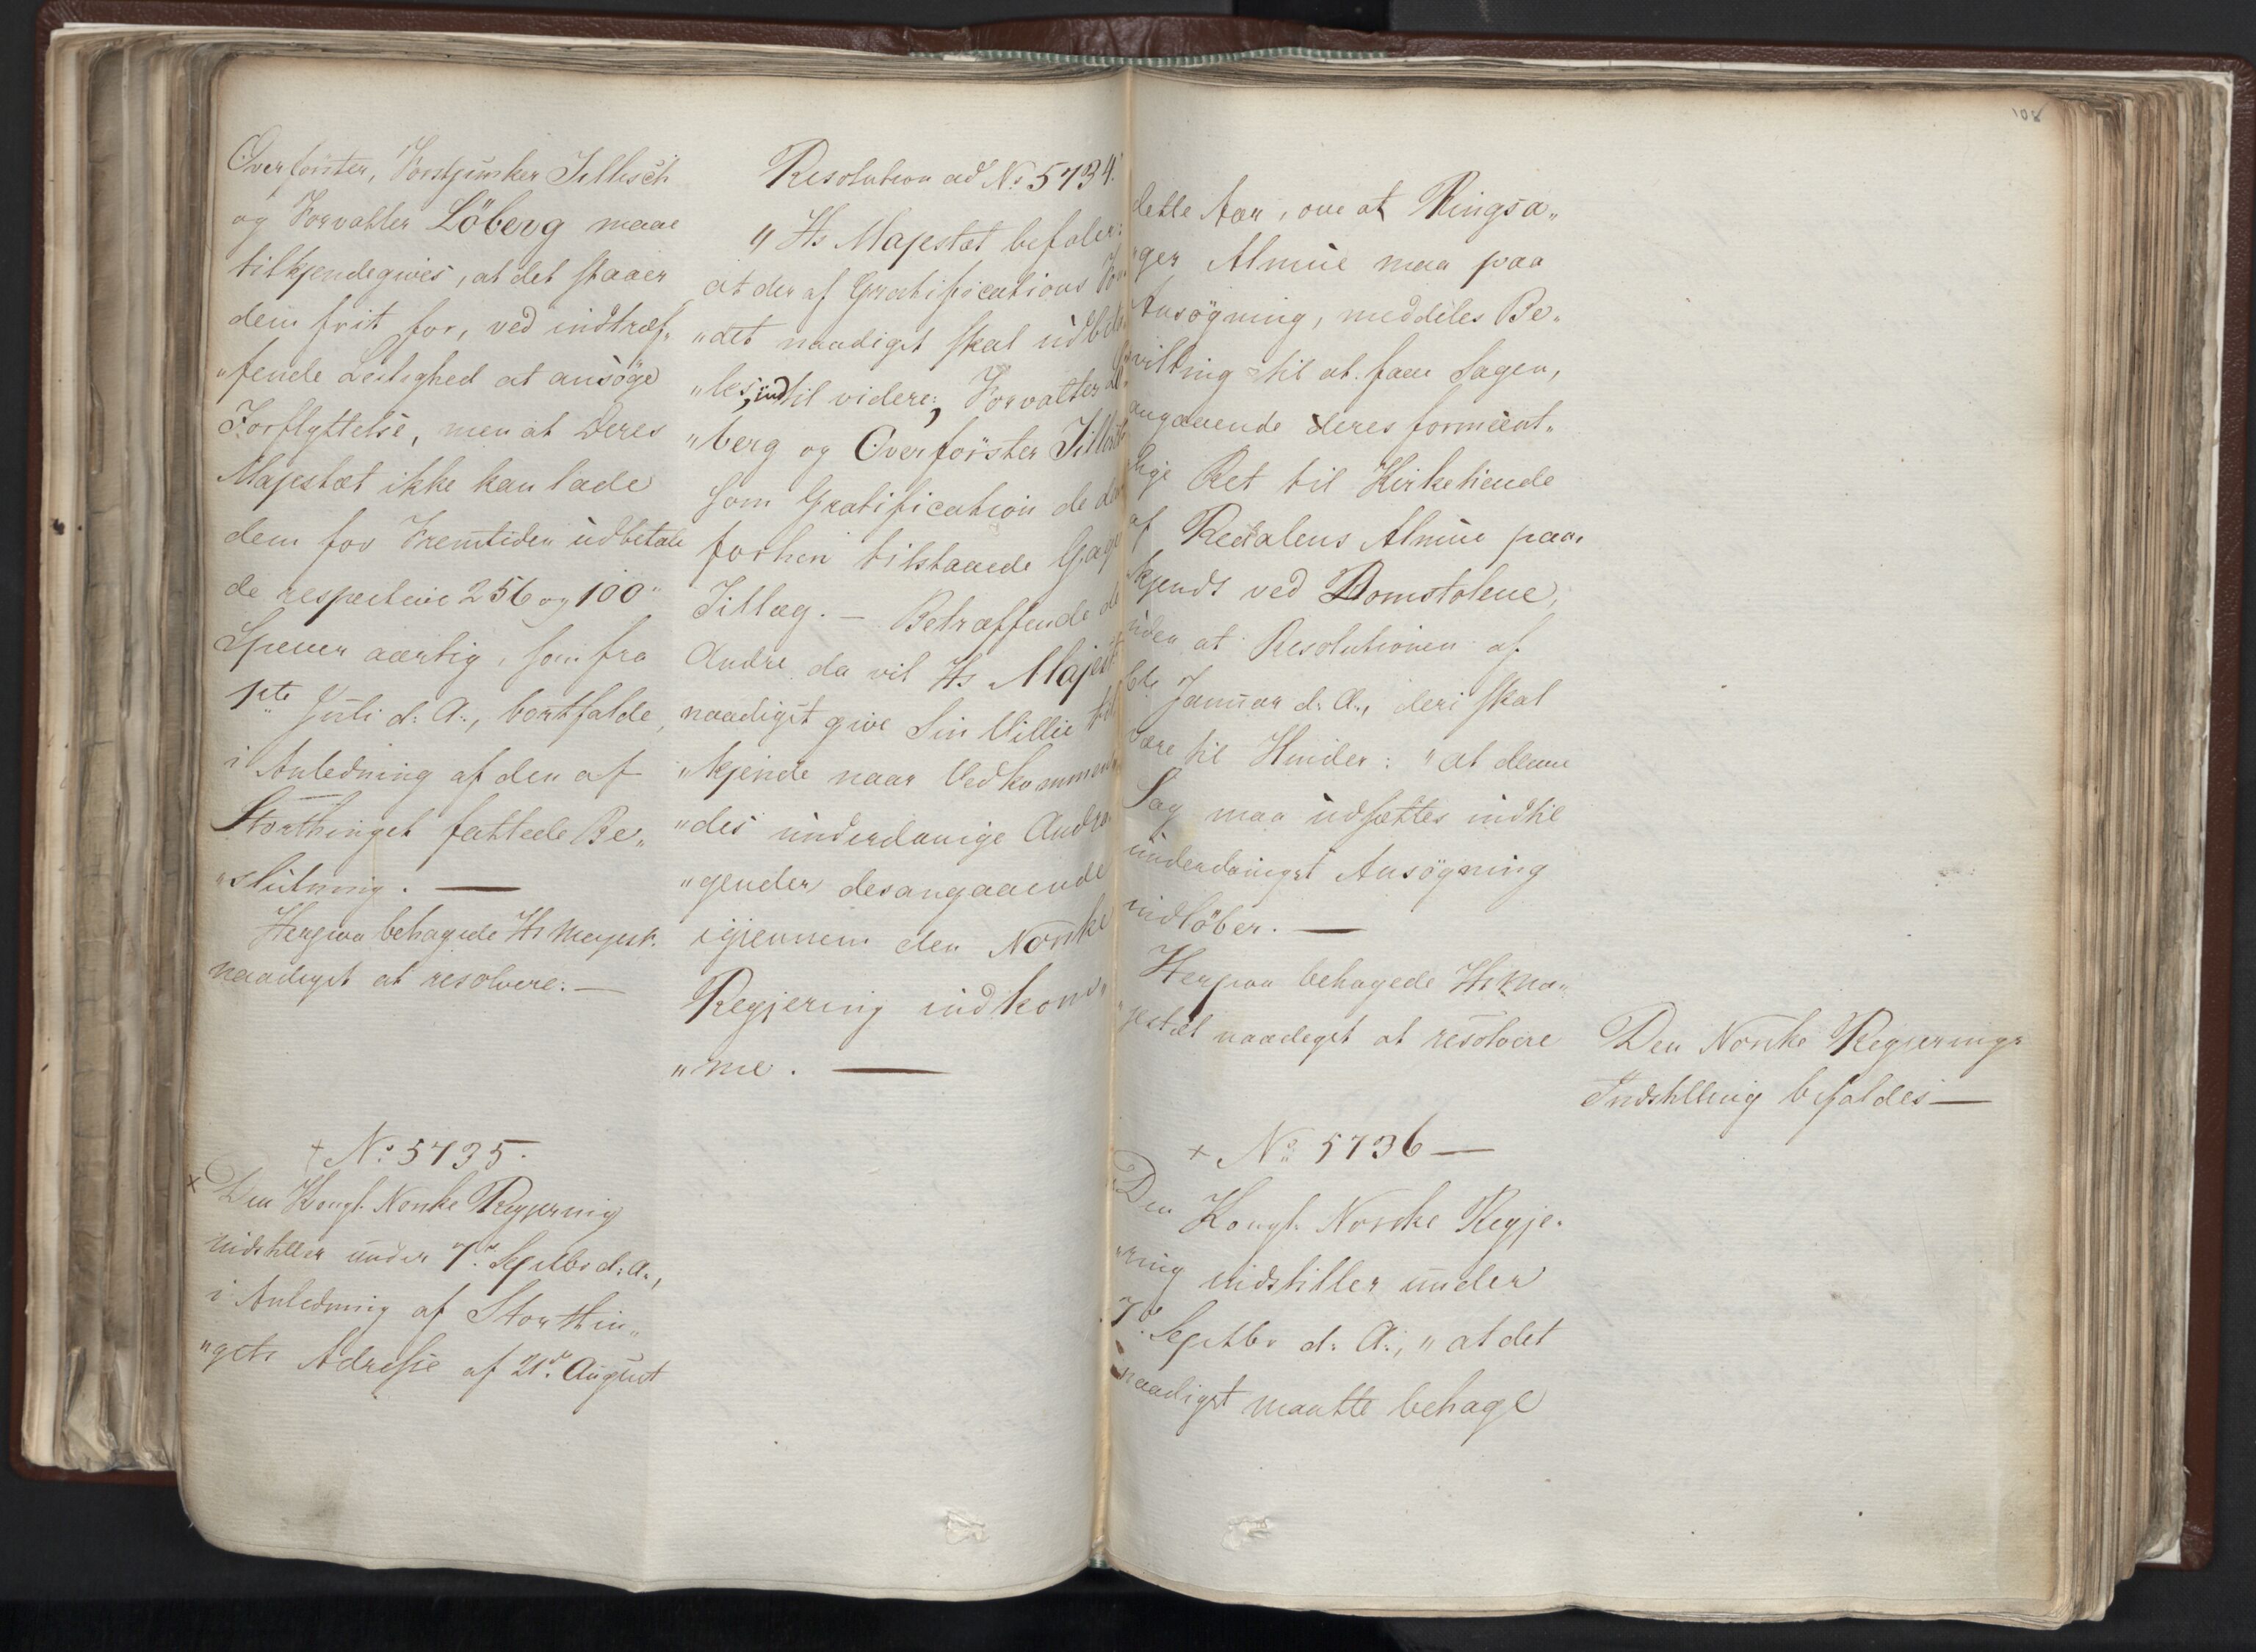 Overförster, Forstjunker Tillisch
og Forvalter Löberg maae
tilkjendegives, at det staaer
dem frit for, ved indtræf„
„fende Leilighed at ansöge
Forflyttelse, men at Deres
Majestæt ikke kan lade
dem for Fremtiden udbetale
de respective 256 og 100„
Specier aarlig, som fra
1ste Juli d: A:, bortfalde,
i Anledning af den af
Storthinget fattede Be„
„slutning. —
Herpaa behagede Hs Majest.
naadigst at resolvere: —
+ No 5735.
x Den Kongl. Norske Regjering
indstiller under 7de Septbr d: A:,
i Anledning af Storthin„
„gets Adresse af 21de August
Resolution ad No 5734.
„ Hs Majestæt befaler:
at der af Gratifications Fon
„det naadigst skal udbeta
„les, indtil videre, Forvalter Lö
„berg og Overförster Tillisch
som Gratification de dem
forhen tilstaaede Gage
Tillæg. — Betræffende de
Andre da vil Hs Majest
naadigst give Sin Villie til
„kjende naar Vedkommen
„des underdanige Andra
„gender desangaaende
igjennem den Norske
Regjering indkom„
„me. —
108
dette Aar, om at Ringsa„
„ger Almue maa paa
Ansögning, meddeles Be„
„villing til at faae Sagen,
angaaende deres forment„
lige Ret til Kirketiende
af Redalens Almue paa„
kjendt ved Domstolene,
uden at Resolutionen af
6te Januar d: A:, deri skal
være til Hinder: „at denne
Sag maa udsættes indtil
underdanigst Ansögning
indlöber. —
Herpaa behagede Hs Ma„
„jestæt naadigst at resolvere
Den Norske Regjerings
Indstilling befaldes —
+ No 5736 —
Den Kongl. Norske Regje„
„ring indstiller under
7de Septbr d: A:, „at det
naadigst maatte behage